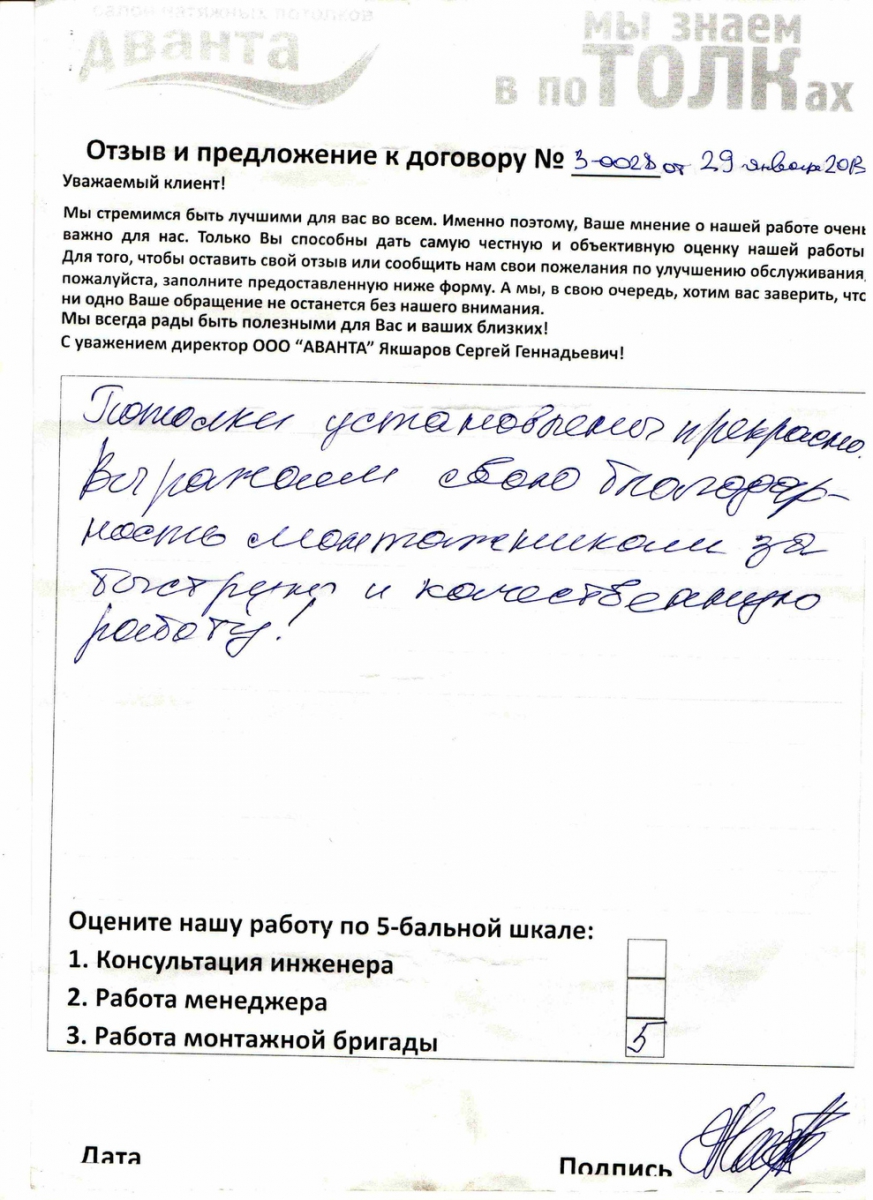 салон натяжных потолков
Аванта
мы знаем
в поТОЛКах
Отзыв и предложение к договору № 3-0028 от 29 января 2013
Уважаемый клиент!
Мы стремимся быть лучшими для вас во всем. Именно поэтому, Ваше мнение о нашей работе очень
важно для нас. Только Вы способны дать самую честную и объективную оценку нашей работы
Для того, чтобы оставить свой отзыв или сообщить нам свои пожелания по улучшению обслуживания,
пожалуйста, заполните предоставленную ниже форму. А мы, в свою очередь, хотим вас заверить, что
ни одно Ваше обращение не останется без нашего внимания.
Мы всегда рады быть полезными для Вас и ваших близких!
С уважением директор ООО "АВАНТА" Якшаров Сергей Геннадьевич!
Потолки установлены прекрасно.
Выражаем свою благодар-
ность монтажникам за
быструю и качественную
работу!
Оцените нашу работу по 5-бальной шкале:
1. Консультация инженера
2. Работа менеджера
3. Работа монтажной бригады 5
Дата Подпись